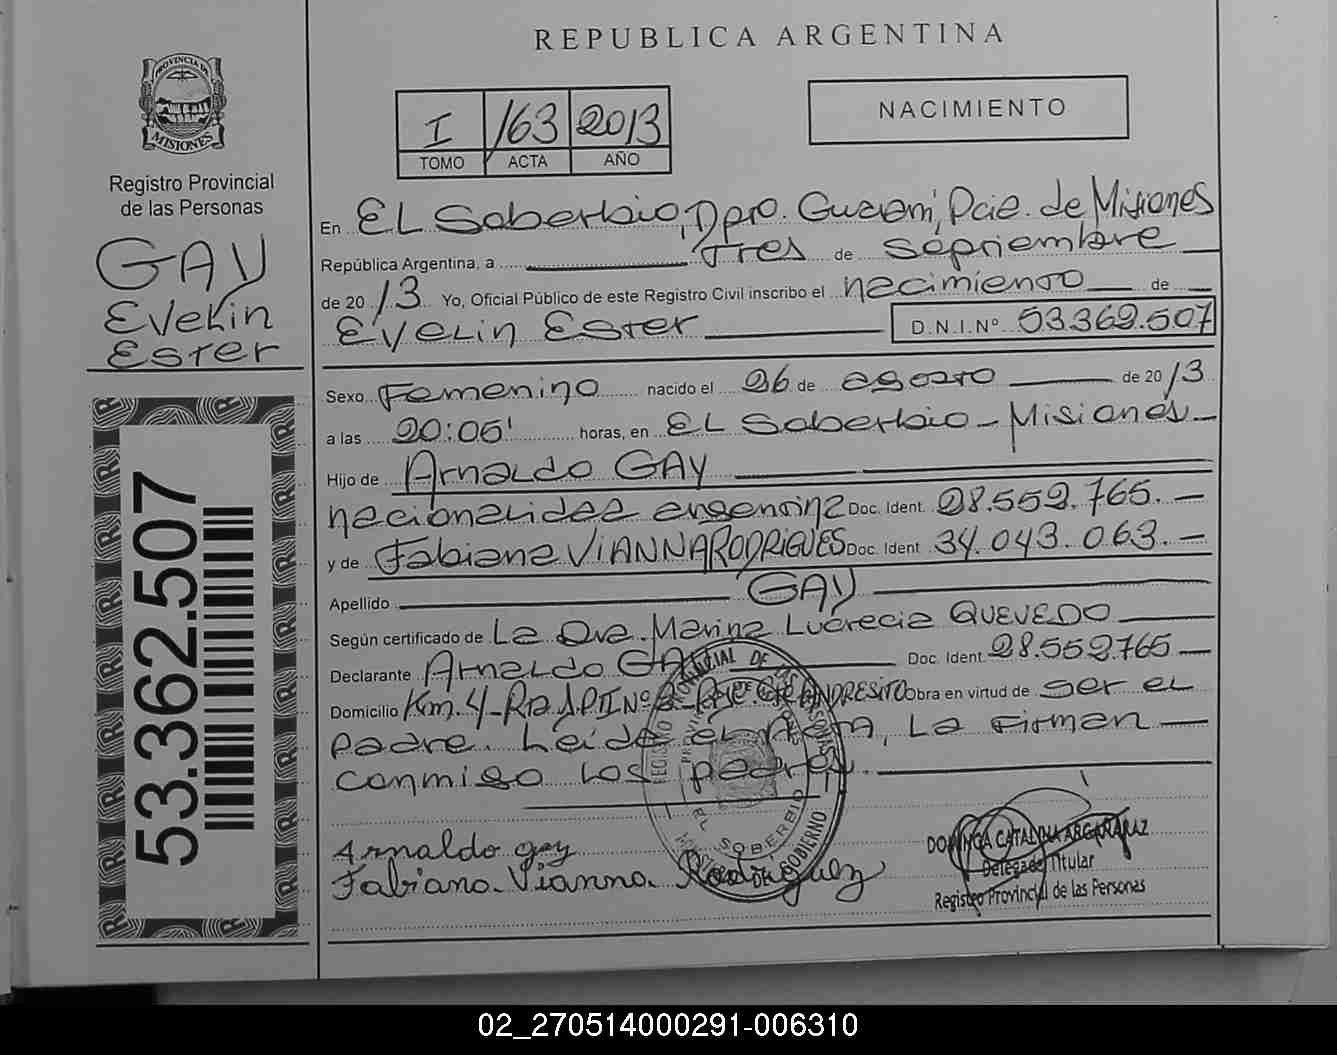 REPUBLICA ARGENTINA
PROVINCIA DE
MISIONES
Registro Provincial
de las Personas
GAY
Evelin
Ester
53.362.507
I 163 2013
TOMO ACTA AÑO
NACIMIENTO
En EL Soberbio, Dpto. Guaraní, Pcia. de Misiones
República Argentina, a tres de septiembre
de 2013 Yo, Oficial Público de este Registro Civil inscribo el nacimiento de
Evelin Ester D.N.I.Nº 53.362.507
Sexo Femenino nacido el 26 de agosto de 2013
a las 20:05' horas, en EL Soberbio - Misiones
Hijo de Arnaldo GAY
nacionalidad argentina Doc. Ident. 28.552.765.
y de Fabiana VIANNA RODRIGUES Doc. Ident 34.043.063.
Apellido GAY
Según certificado de La Dra. Marina Lucrecia QUEVEDO
Declarante Arnaldo GAY Doc. Ident. 28.552.765
Domicilio Km. 4 - ANDRESITO Obra en virtud de ser el
padre. Leída el Acta, La Firman
conmigo Los padres.
Arnaldo gay
Fabiana Vianna Rodriguez
EL SOBERBIO
DOMINGA CATALINA ARGAÑARAZ
Delegado Titular
Registro Provincial de las Personas
02_270514000291-006310